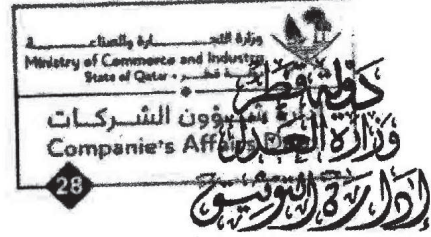 وزارة التجـــــارة والصناعـــــة
Ministry of Commerce and Industry
State of Qatar - دولـــة قطـــر
شـــؤون الشـــركـــات
Companie's Affairs
28
دولة قطر
وزارة العدل
إدارة التوثيق